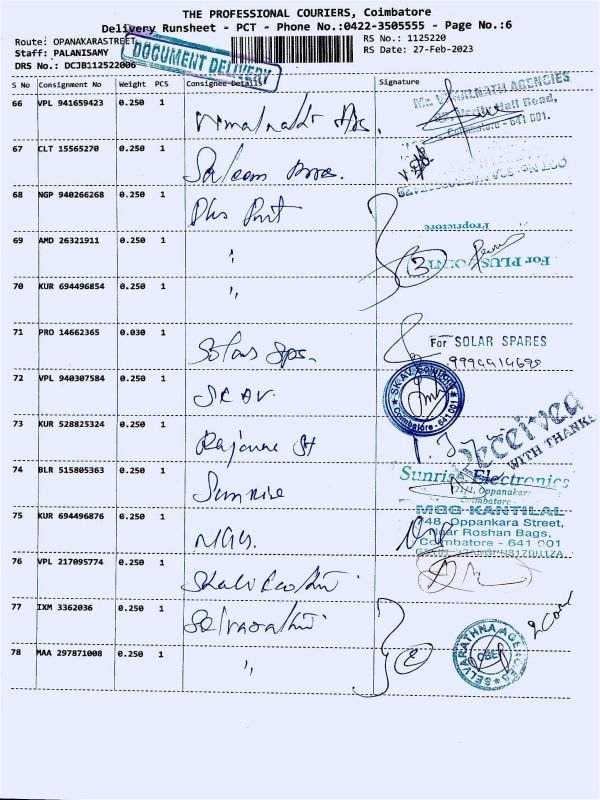 THE PROFESSIONAL COURIERS, Coimbatore
Delivery Runsheet - PCT - Phone No.:0422-3505555 - Page No.:6
Route: OPANAKARASTREET RS No.: 1125220
Staff: PALANISAMY RS Date: 27-Feb-2023
DRS No.: DCJB112522006
DOCUMENT DELIVERY
S No Consignment No Weight PCS Consignee Details Signature
66 VPL 941659423 0.250 1
Hall Road,
Coimbatore - 641 001.
67 CLT 15565270 0.250 1 Saleem Bros.
68 NGP 940266268 0.250 1 Plus Point
Proprietor
69 AMD 26321911 0.250 1 "
3 For PLUS POINT
70 KUR 694496854 0.250 1 "
71 PRO 14662365 0.030 1 Solar Sps. For SOLAR SPARES
72 VPL 940307584 0.250 1 SK AV.
SK AV
Coimbatore - 641 001
73 KUR 528825324 0.250 1
Received
WITH THANKS
74 BLR 515805363 0.250 1 Sunrise Sunrise Electronics
Oppanakar
Coimbatore -
75 KUR 694496876 0.250 1 MGG KANTILAL
448, Oppankara Street,
Near Roshan Bags,
Coimbatore - 641 001
76 VPL 217095774 0.250 1
77 IXM 3362036 0.250 1
78 MAA 297871008 0.250 1 " 2
SELVARATHNA AGENCIES
CBE-1